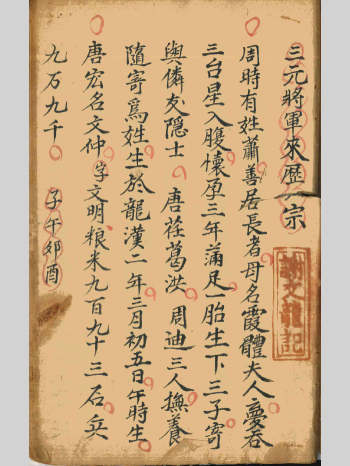 三元將軍來歷一宗
周時有姓蕭善居長者母名霞體夫人夢吞
三台星入腹懷孕三年滿足一胎生下三子寄
與憐友隱士 唐荏葛洪 周迪三人撫養
隨寄爲姓生於龍漢二年三月初五日午時生
唐宏名文仲字文明粮米九百九十三石兵
九万九千 子午夘酉
謝文
記